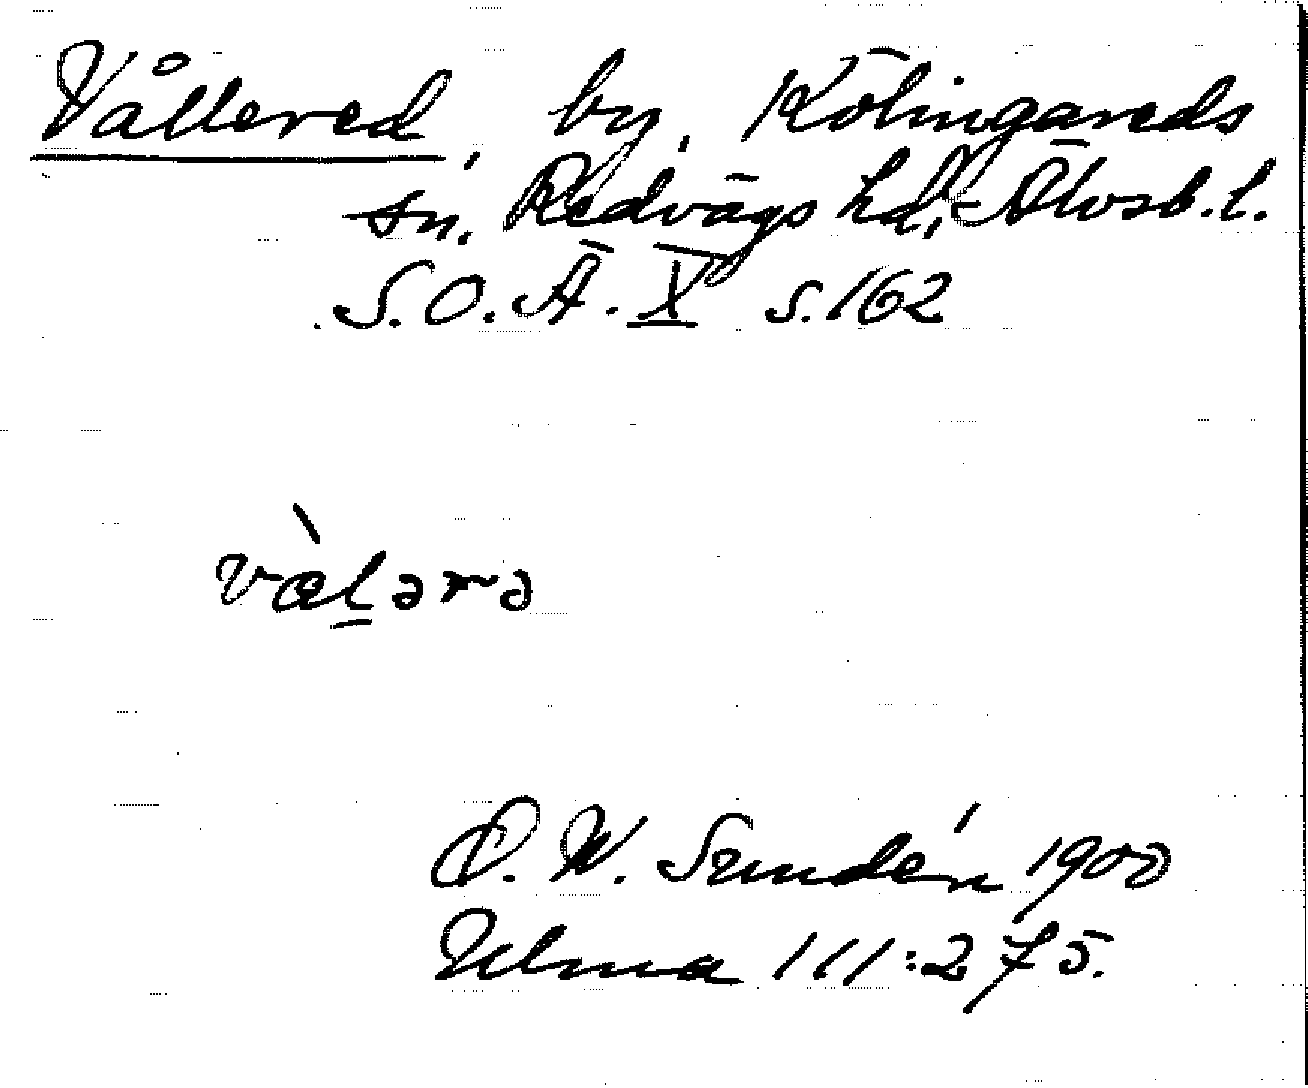 Vållered, by, Kölingareds
sn. Redvägs hd, Älvsb. l.
S.O.Ä. X s. 162
væ̀l̠ərə
D. W. Sundén 1900
Ulma 111:275.